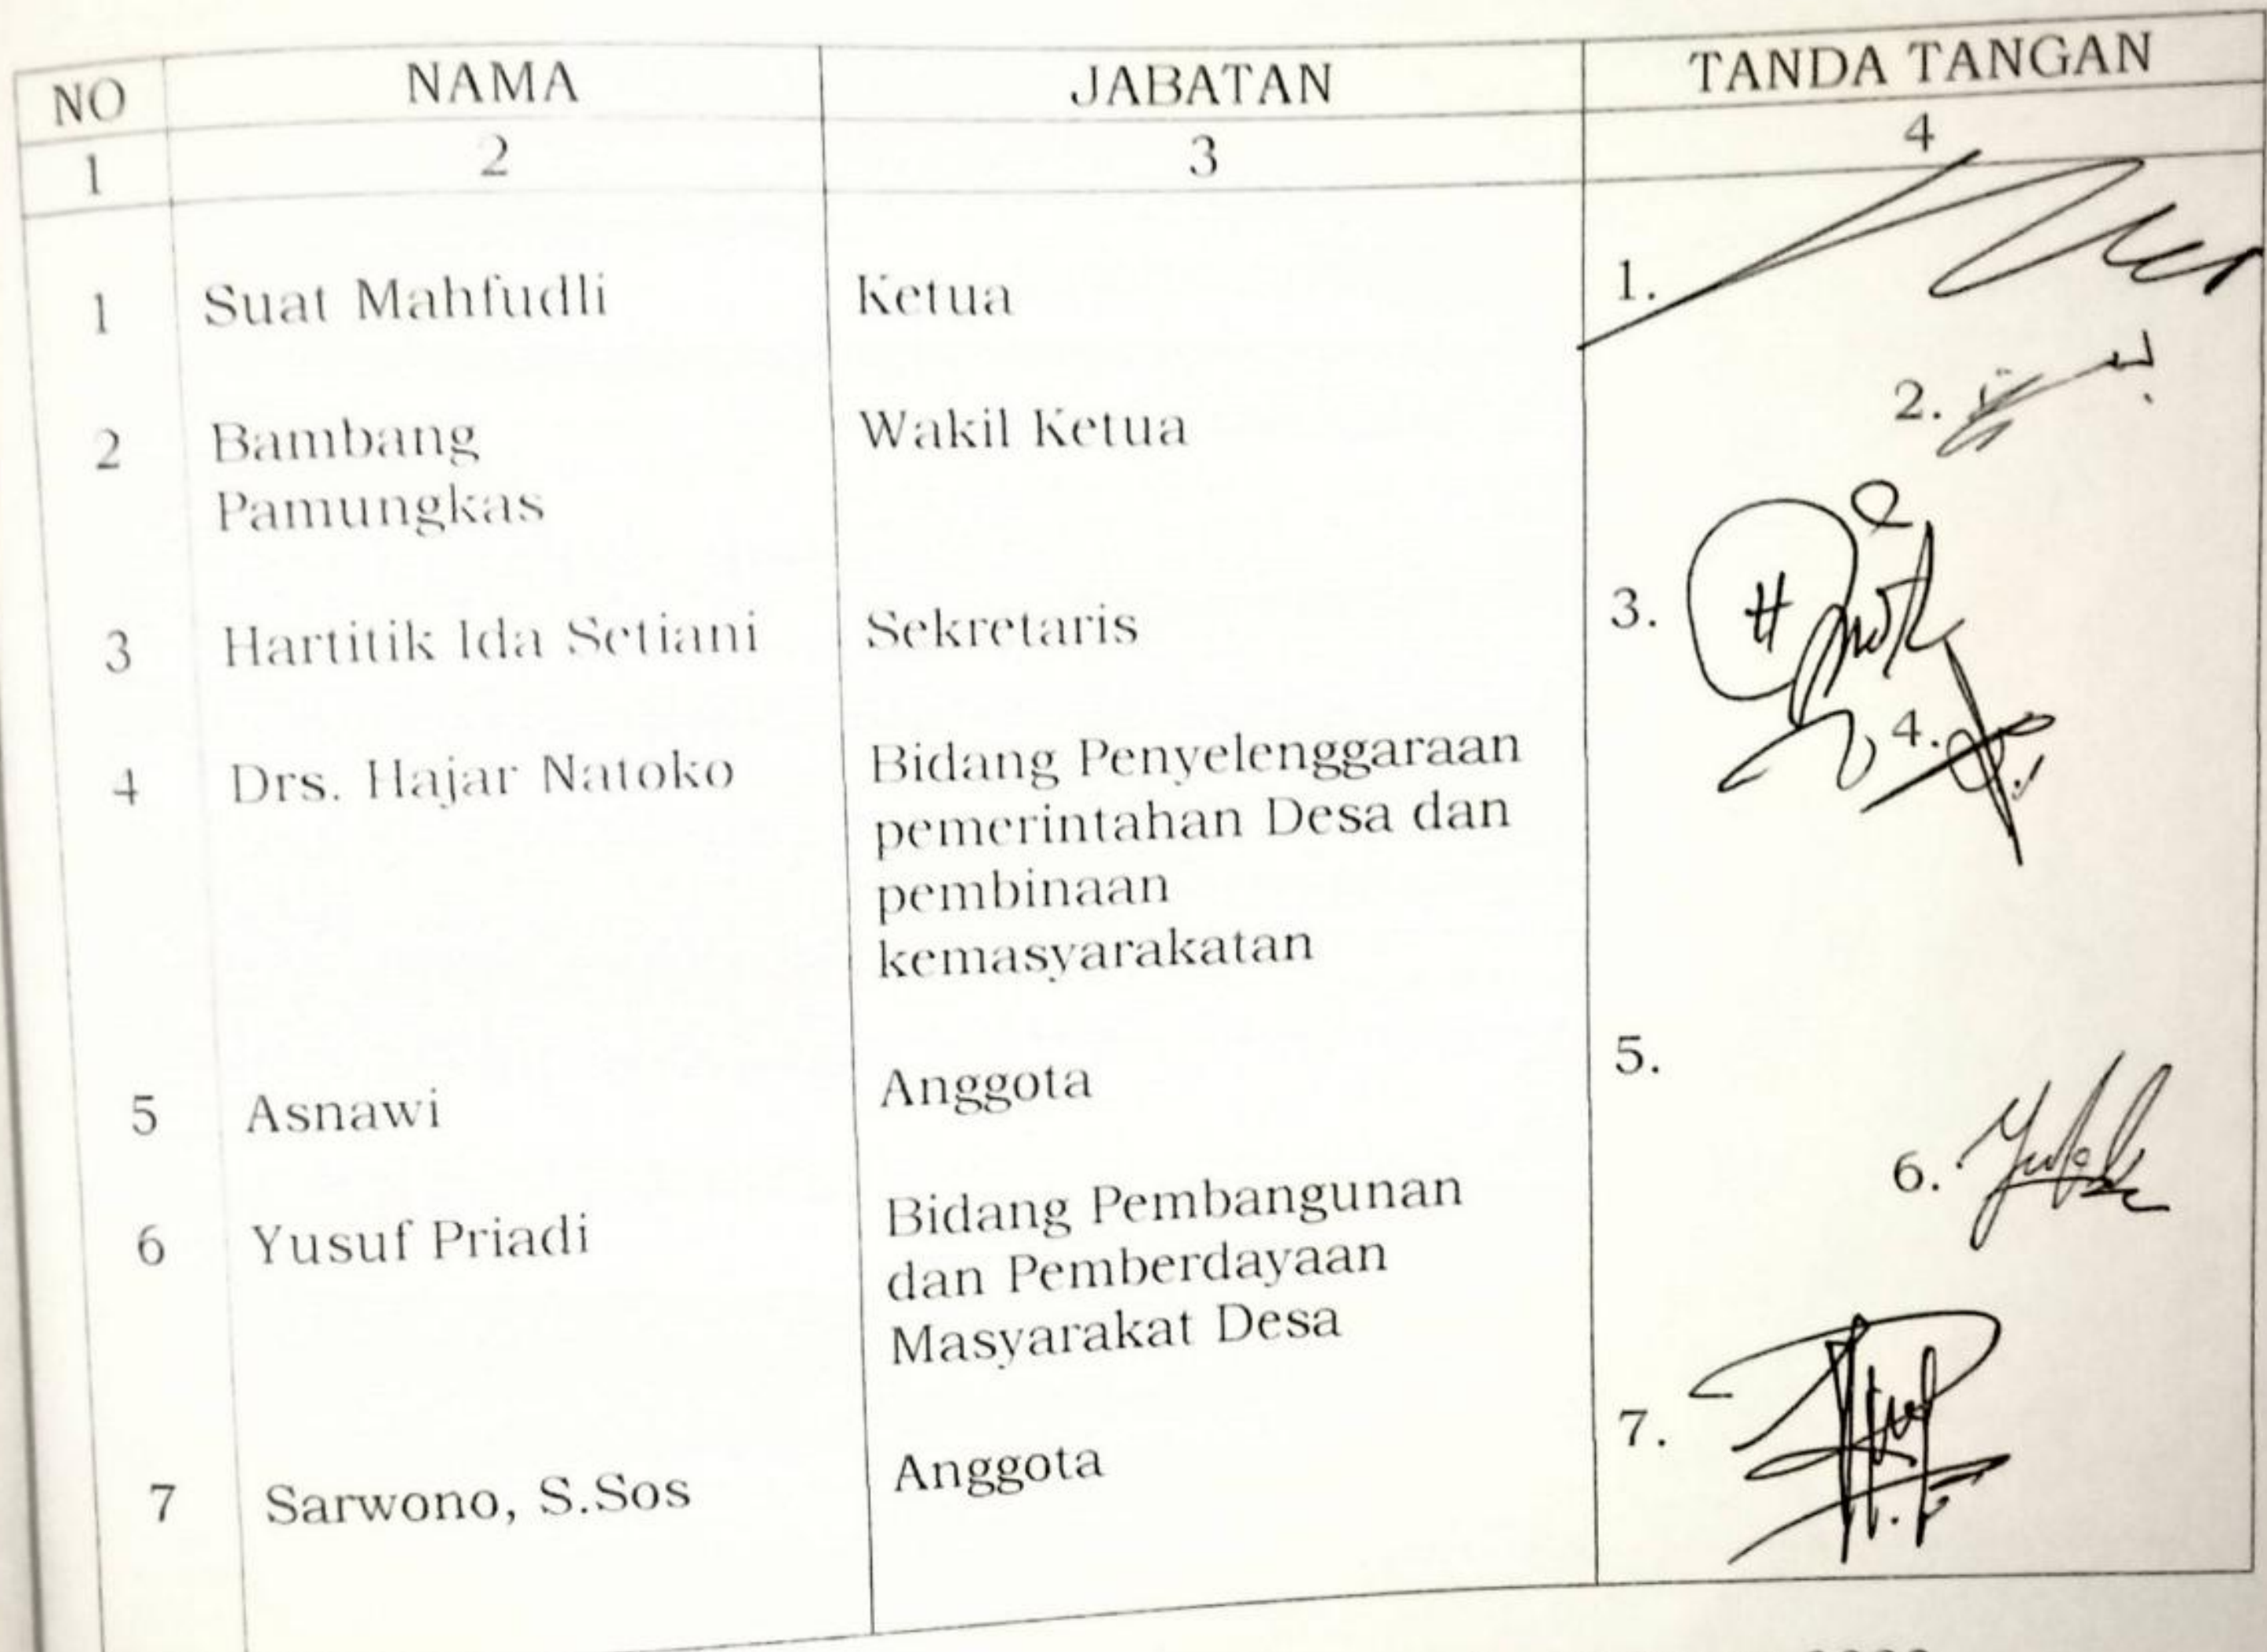 NO NAMA JABATAN TANDA TANGAN
1 2 3 4
1 Suat Mahfudli Ketua 1.
2 Bambang Wakil Ketua 2.
Pamungkas
3 Hartitik Ida Setiani Sekretaris 3.
4 Drs. Hajar Natoko Bidang Penyelenggaraan 4.
pemerintahan Desa dan
pembinaan
kemasyarakatan
5 Asnawi Anggota 5.
6 Yusuf Priadi Bidang Pembangunan 6.
dan Pemberdayaan
Masyarakat Desa
7 Sarwono, S.Sos Anggota 7.